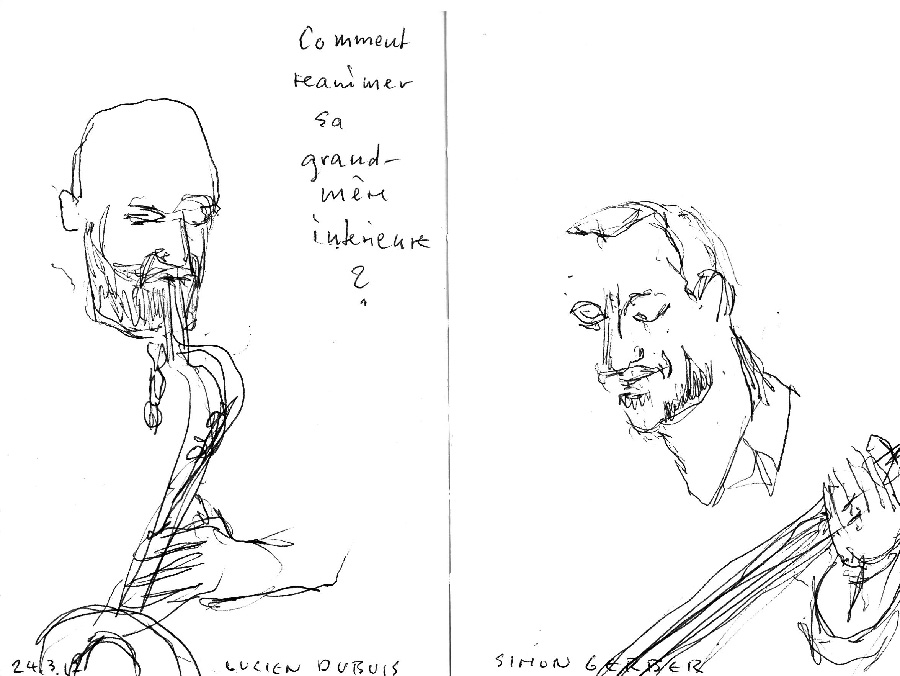 Comment
reanimer
sa
grand-
mère
intérieure
?
24.3.12 LUCIEN DUBUIS
SIMON GERBER